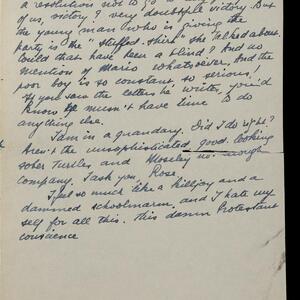 a resolution not to go to
of us, victory? very doubtful victory. But
the young man who is giving the
party is the "stuffed-shirt" she talked about.
Could that have been a blind? And no
mention of Mario whatsoever. And the
poor boy is so constant, so serious,
If you saw the letters he writes, you'd
know he mustn't have time to do
anything else.
I am in a quandary. Did I do right?
Aren't the unsophisticated, good looking
sober Turtles and Moseley no:
company, I ask you, Rose.
I feel so much like a killjoy and a
damned schoolmarm, and I hate my
self for all this. This damn Protestant
conscience